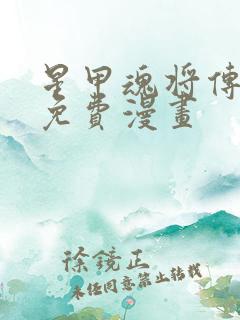 星甲魂将傳
免費漫畫
徐鏡正
未经同意禁止转载